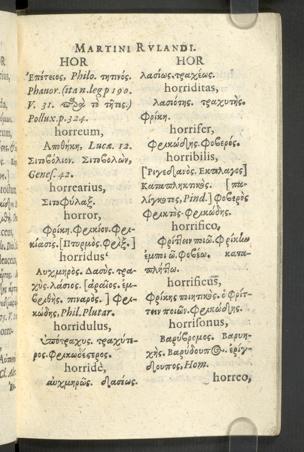 MARTINI RVLANDI.
HOR
Ἐπέτειος, Philo. τητινός.
Phauor. (ita n. leg p 190.
V. 31. τὸ τῆτες.)
Pollux p. 324.
horreum,
Ἀποθήκη, Luca. 12.
Σιτοβόλιον. Σιτοβολών,
Genes. 42.
horrearius,
Σιτοφύλαξ.
horror,
Φρίκη. Φρικίον. Φρι-
κίασις. [Πτυρμός. Φρίξ.]
horridus
Αὐχμηρὸς. Δασὺς. τρα-
χὺς. λάσιος. [ἀραῖος.
πιναρός. ] φρι-
κώδης, Phil. Plutar.
horridulus,
ὑπότραχυς. τραχύτε-
ρος. φρικωδέστερος.
horridè,
αὐχμηρῶς. δασέως.
HOR
λασίως. τραχέως.
horriditas,
λασιότης. τραχυτής.
φρίκη.
horrifer,
Φρικώδης. Φοβερός.
horribilis,
[Ῥιγεδανός. Ἐκπλαγος]
Καταπληκτικὸς. [πα-
λίγκοτος, Pind.] Φοβερὸς
Φρικτὸς. Φρικώδης.
horrifico,
Φρίττειν ποιῶ. Φρίκην
ἐμποιῶ. Φοβέω. κατα-
πλήττω.
horrificus,
Φρίκης ποιητικὸς. ὁ φρίτ-
τειν ποιῶν. Φρικώδης.
horrisonus,
Βαρύβρομος. Βαρυη-
χὴς. Βαρύδουπος. ἐρίγ-
δουπος, Hom.
horreo,